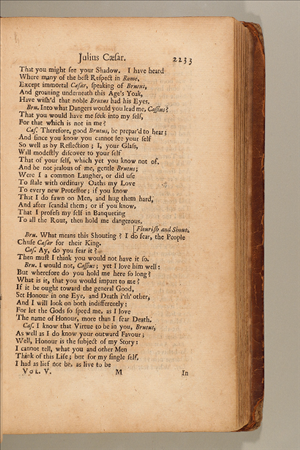 Julius Cæsar. 2233
That you might see your Shadow. I have heard
Where many of the best Respect in Rome,
Except immortal Cæsar, speaking of Brutus,
And groaning underneath this Age's Yoak,
Have wish'd that noble Brutus had his Eyes.
Bru. Into what Dangers would you lead me, Cassius?
That you would have me seek into my self,
For that which is not in me?
Cas. Therefore, good Brutus, be prepar'd to hear;
And since you know you cannot see your self
So well as by Reflection; I, your Glass,
Will modestly discover to your self
That of your self, which yet you know not of.
And be not jealous of me, gentle Brutus;
Were I a common Laugher, or did use
To stale with ordinary Oaths my Love
To every new Protestor; if you know
That I do fawn on Men, and hug them hard,
And after scandal them; or if you know,
That I profess my self in Banqueting
To all the Rout, then hold me dangerous.
[Flourish and Shout.
Bru. What means this Shouting? I do fear, the People
Chuse Cæsar for their King.
Cas. Ay, do you fear it?
Then must I think you would not have it so.
Bru. I would not, Cassius; yet I love him well:
But wherefore do you hold me here so long?
What is it, that you would impart to me?
If it be ought toward the general Good,
Set Honour in one Eye, and Death i'th' other,
And I will look on both indifferently:
For let the Gods so speed me, as I love
The name of Honour, more than I fear Death.
Cas. I know that Virtue to be in you, Brutus,
As well as I do know your outward Favour;
Well, Honour is the subject of my Story:
I cannot tell, what you and other Men
Think of this Life; but for my single self,
I had as lief not be, as live to be
VOL. V. M In